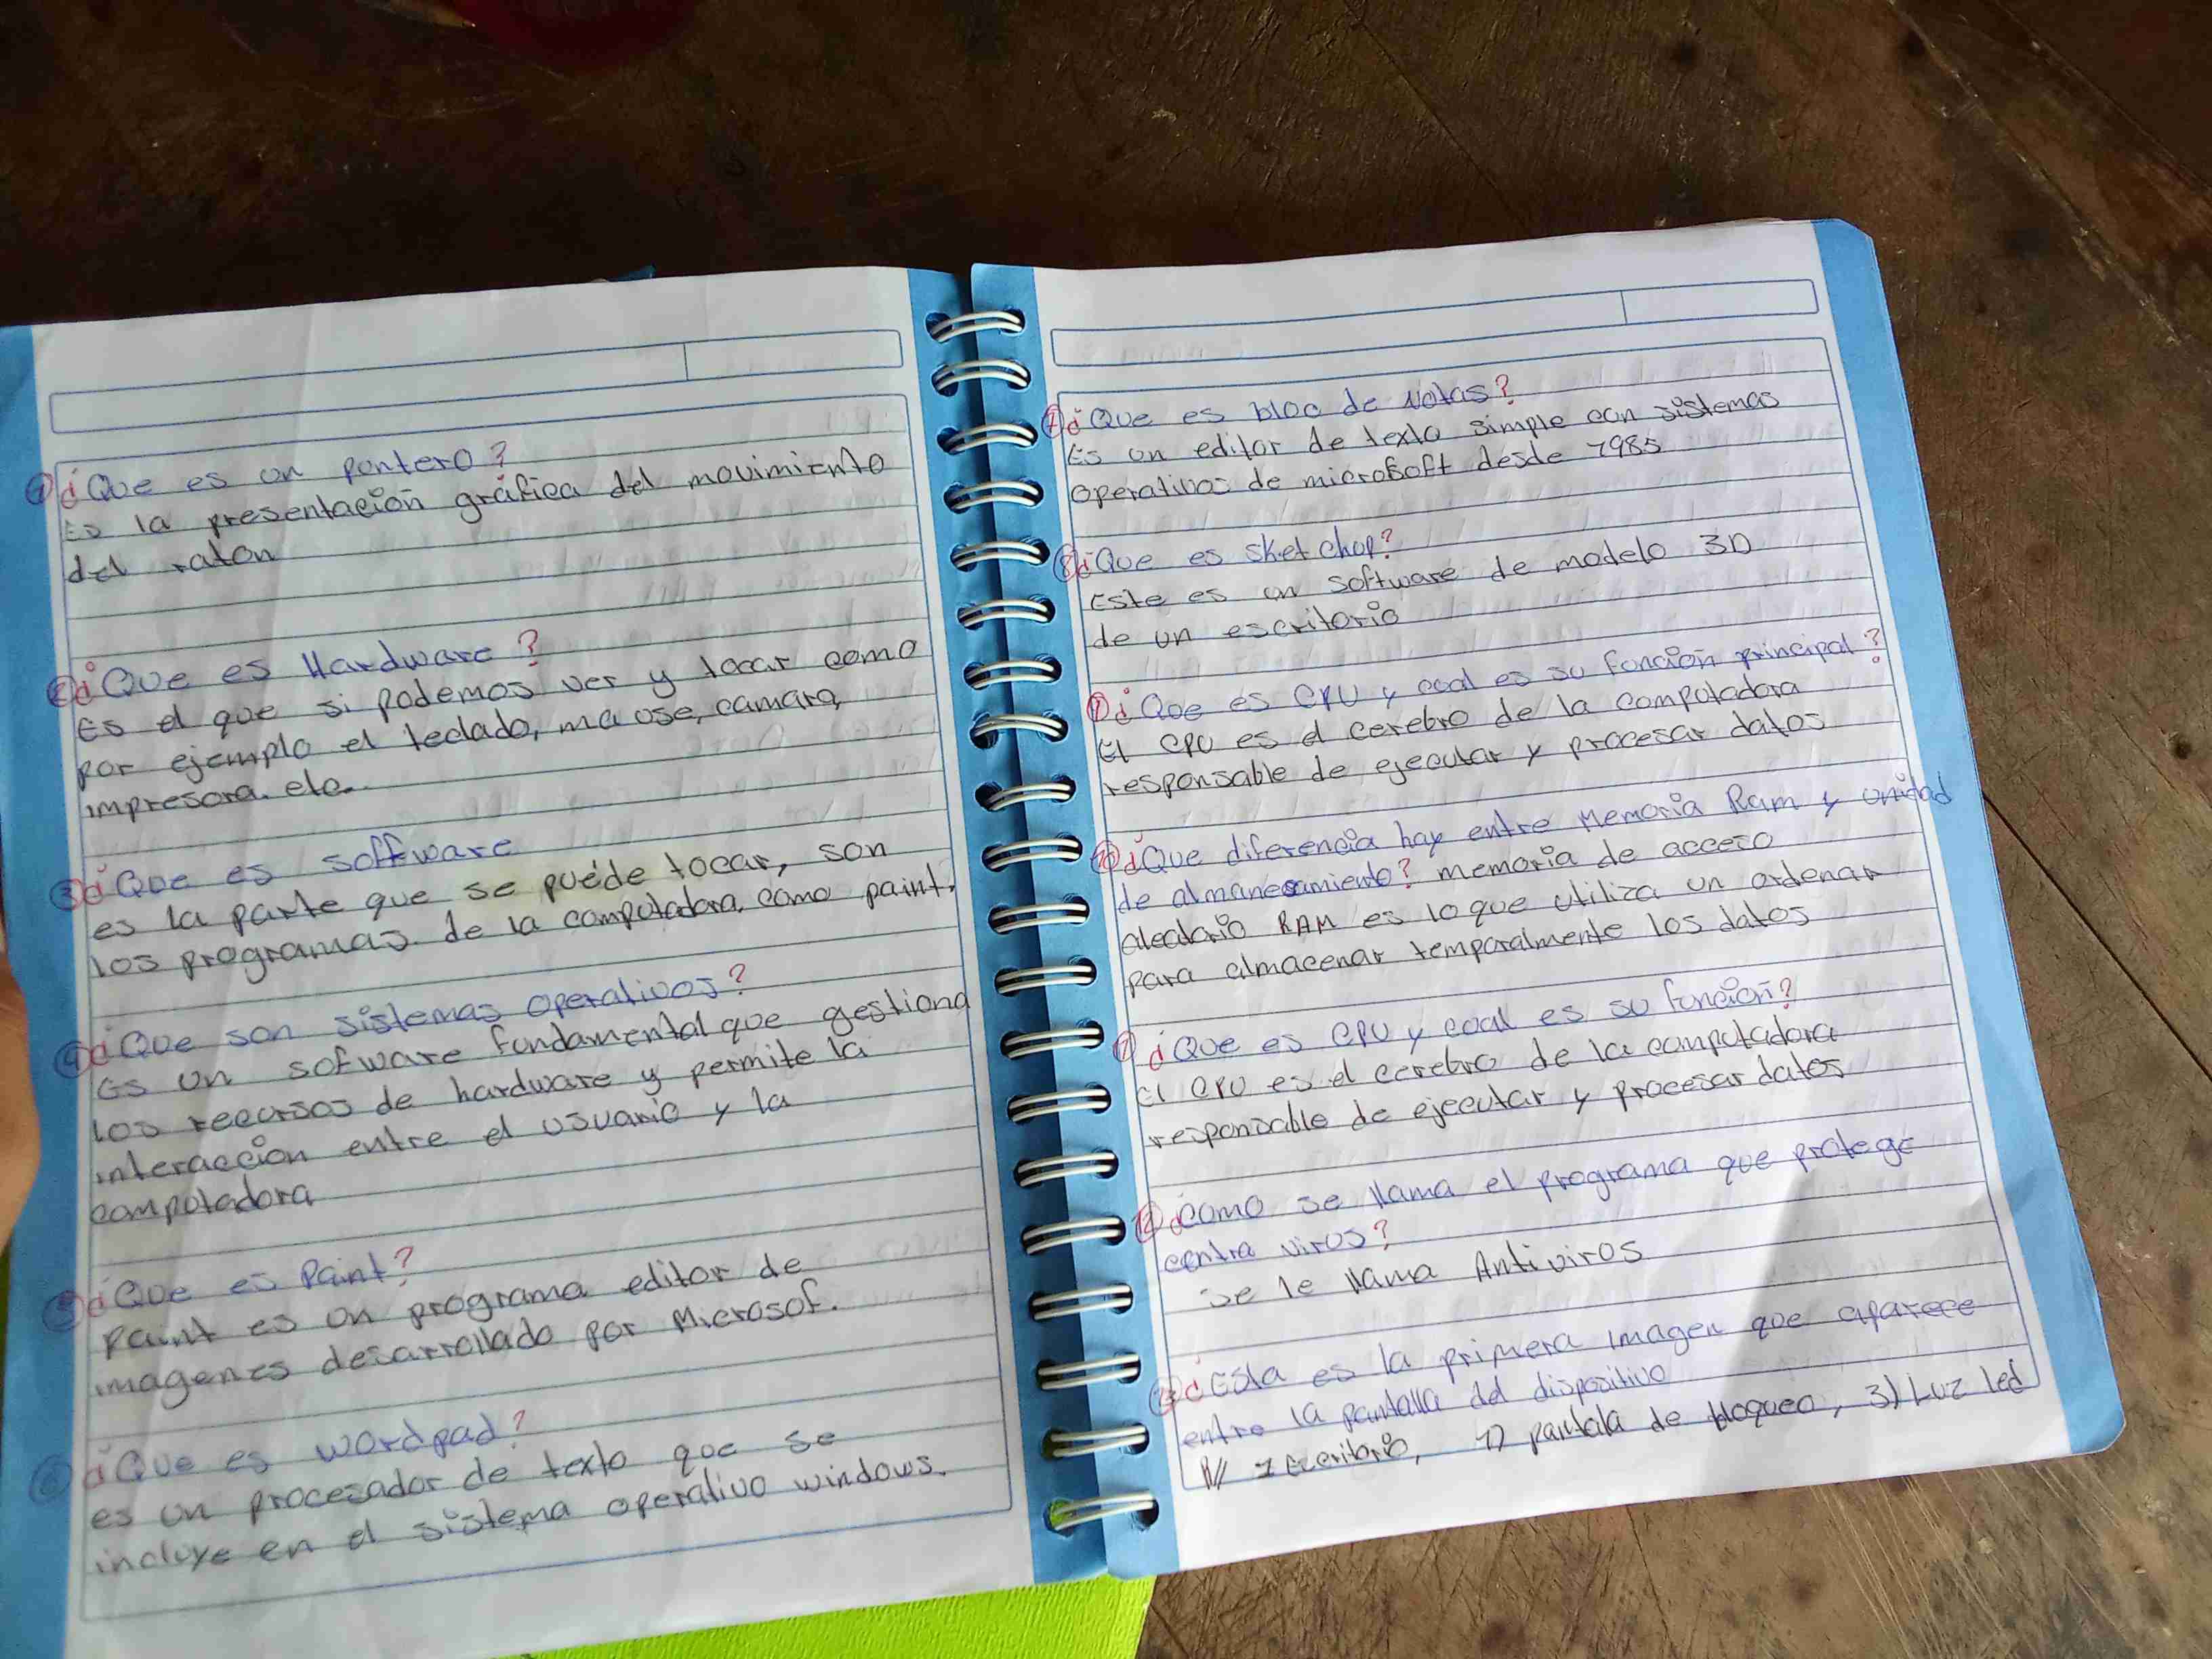 1 ¿Que es un puntero?
Es la presentación gráfica del movimiento
del raton
2 ¿Que es Hardware?
Es el que si podemos ver y tocar como
por ejemplo el teclado, mause, camara,
impresora. etc.
3 ¿Que es software
es la parte que se puede tocar, son
los programas de la computadora, como paint.
4 ¿Que son sistemas operativos?
Es un sofware fundamental que gestiona
los recursos de hardware y permite la
interaccion entre el usuario y la
computadora
5 ¿Que es Paint?
Paint es un programa editor de
imagenes desarrollado por Microsof.
6 ¿Que es wordpad?
es un procesador de texto que se
incluye en el sistema operativo windows.
7 ¿Que es bloc de Notas?
Es un editor de texto simple con sistemas
operativos de microsoft desde 1985
8 ¿Que es sketchup?
Este es un software de modelo 3D
de un escritorio
9 ¿Que es CPU y cual es su función principal?
El CPU es el cerebro de la computadora
responsable de ejecutar y procesar datos
10 ¿Que diferencia hay entre Memoria Ram y unidad
de almanesamiento? memoria de acceso
aleatorio RAM es lo que utiliza un ordenar
para almacenar temporalmente los datos
11 ¿Que es CPU y cual es su función?
El CPU es el cerebro de la computadora
responsable de ejecutar y procesar datos
12 ¿como se llama el programa que protege
contra virus?
se le llama Antivirus
13 ¿Esta es la primera imagen que aparece
entre la pantalla del dispositivo
R// 1 Escritorio, 1) pantala de bloqueo, 3) Luz led